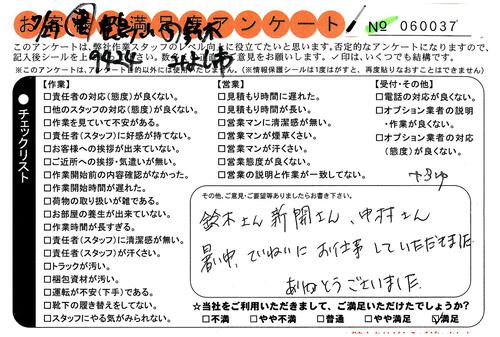 お客様満足度アンケート
№ 060037
このアンケートは、弊社作業スタッフのレベル向上に役立てたいと思います。否定的なアンケートになりますので、
記入後シールを上 ご意見をお願いします。✓印は、いくつでも結構です。
※このアンケートは、アンケート目的以外には使用いたしません。(※情報保護シールは1度がすと、再度貼りなおすことはできません)
チェックリスト
【作業】
□責任者の対応(態度)が良くない。
□他のスタッフの対応(態度)が良くない。
□作業を見ていて不安がある。
□責任者(スタッフ)に好感が持てない。
□お客様への挨拶が出来ていない。
□ご近所への挨拶・気遣いが無い。
□作業開始前の内容確認がなかった。
□作業開始時間が遅れた。
□荷物の取り扱いが雑である。
□お部屋の養生が出来ていない。
□作業時間が長すぎる。
□責任者(スタッフ)に清潔感が無い。
□責任者(スタッフ)が汗くさい。
□トラックが汚い。
□梱包資材が汚い。
□運転が不安(下手)である。
□靴下の履き替えをしてない。
□スタッフにやる気がみられない。
【営業】
□見積もり時間に遅れた。
□見積もり時間が長い。
□営業マンに清潔感が無い。
□営業マンが煙草くさい。
□営業マンが汗くさい。
□営業態度が良くない。
□営業の説明と作業が一致してない。
【受付・その他】
□電話の対応が良くない。
□オプション業者の説明
・作業が良くない。
□オプション業者の対応
(態度)が良くない。
その他、ご意見・ご要望等ありましたらお書き下さい。
鈴木さん 新開さん、中村さん
暑い中、ていねいに お仕事していただきました
ありがとうございました
☆当社をご利用いただきまして、ご満足いただけたでしょうか?
□不満 □やや不満 □普通 □やや満足 ☑満足